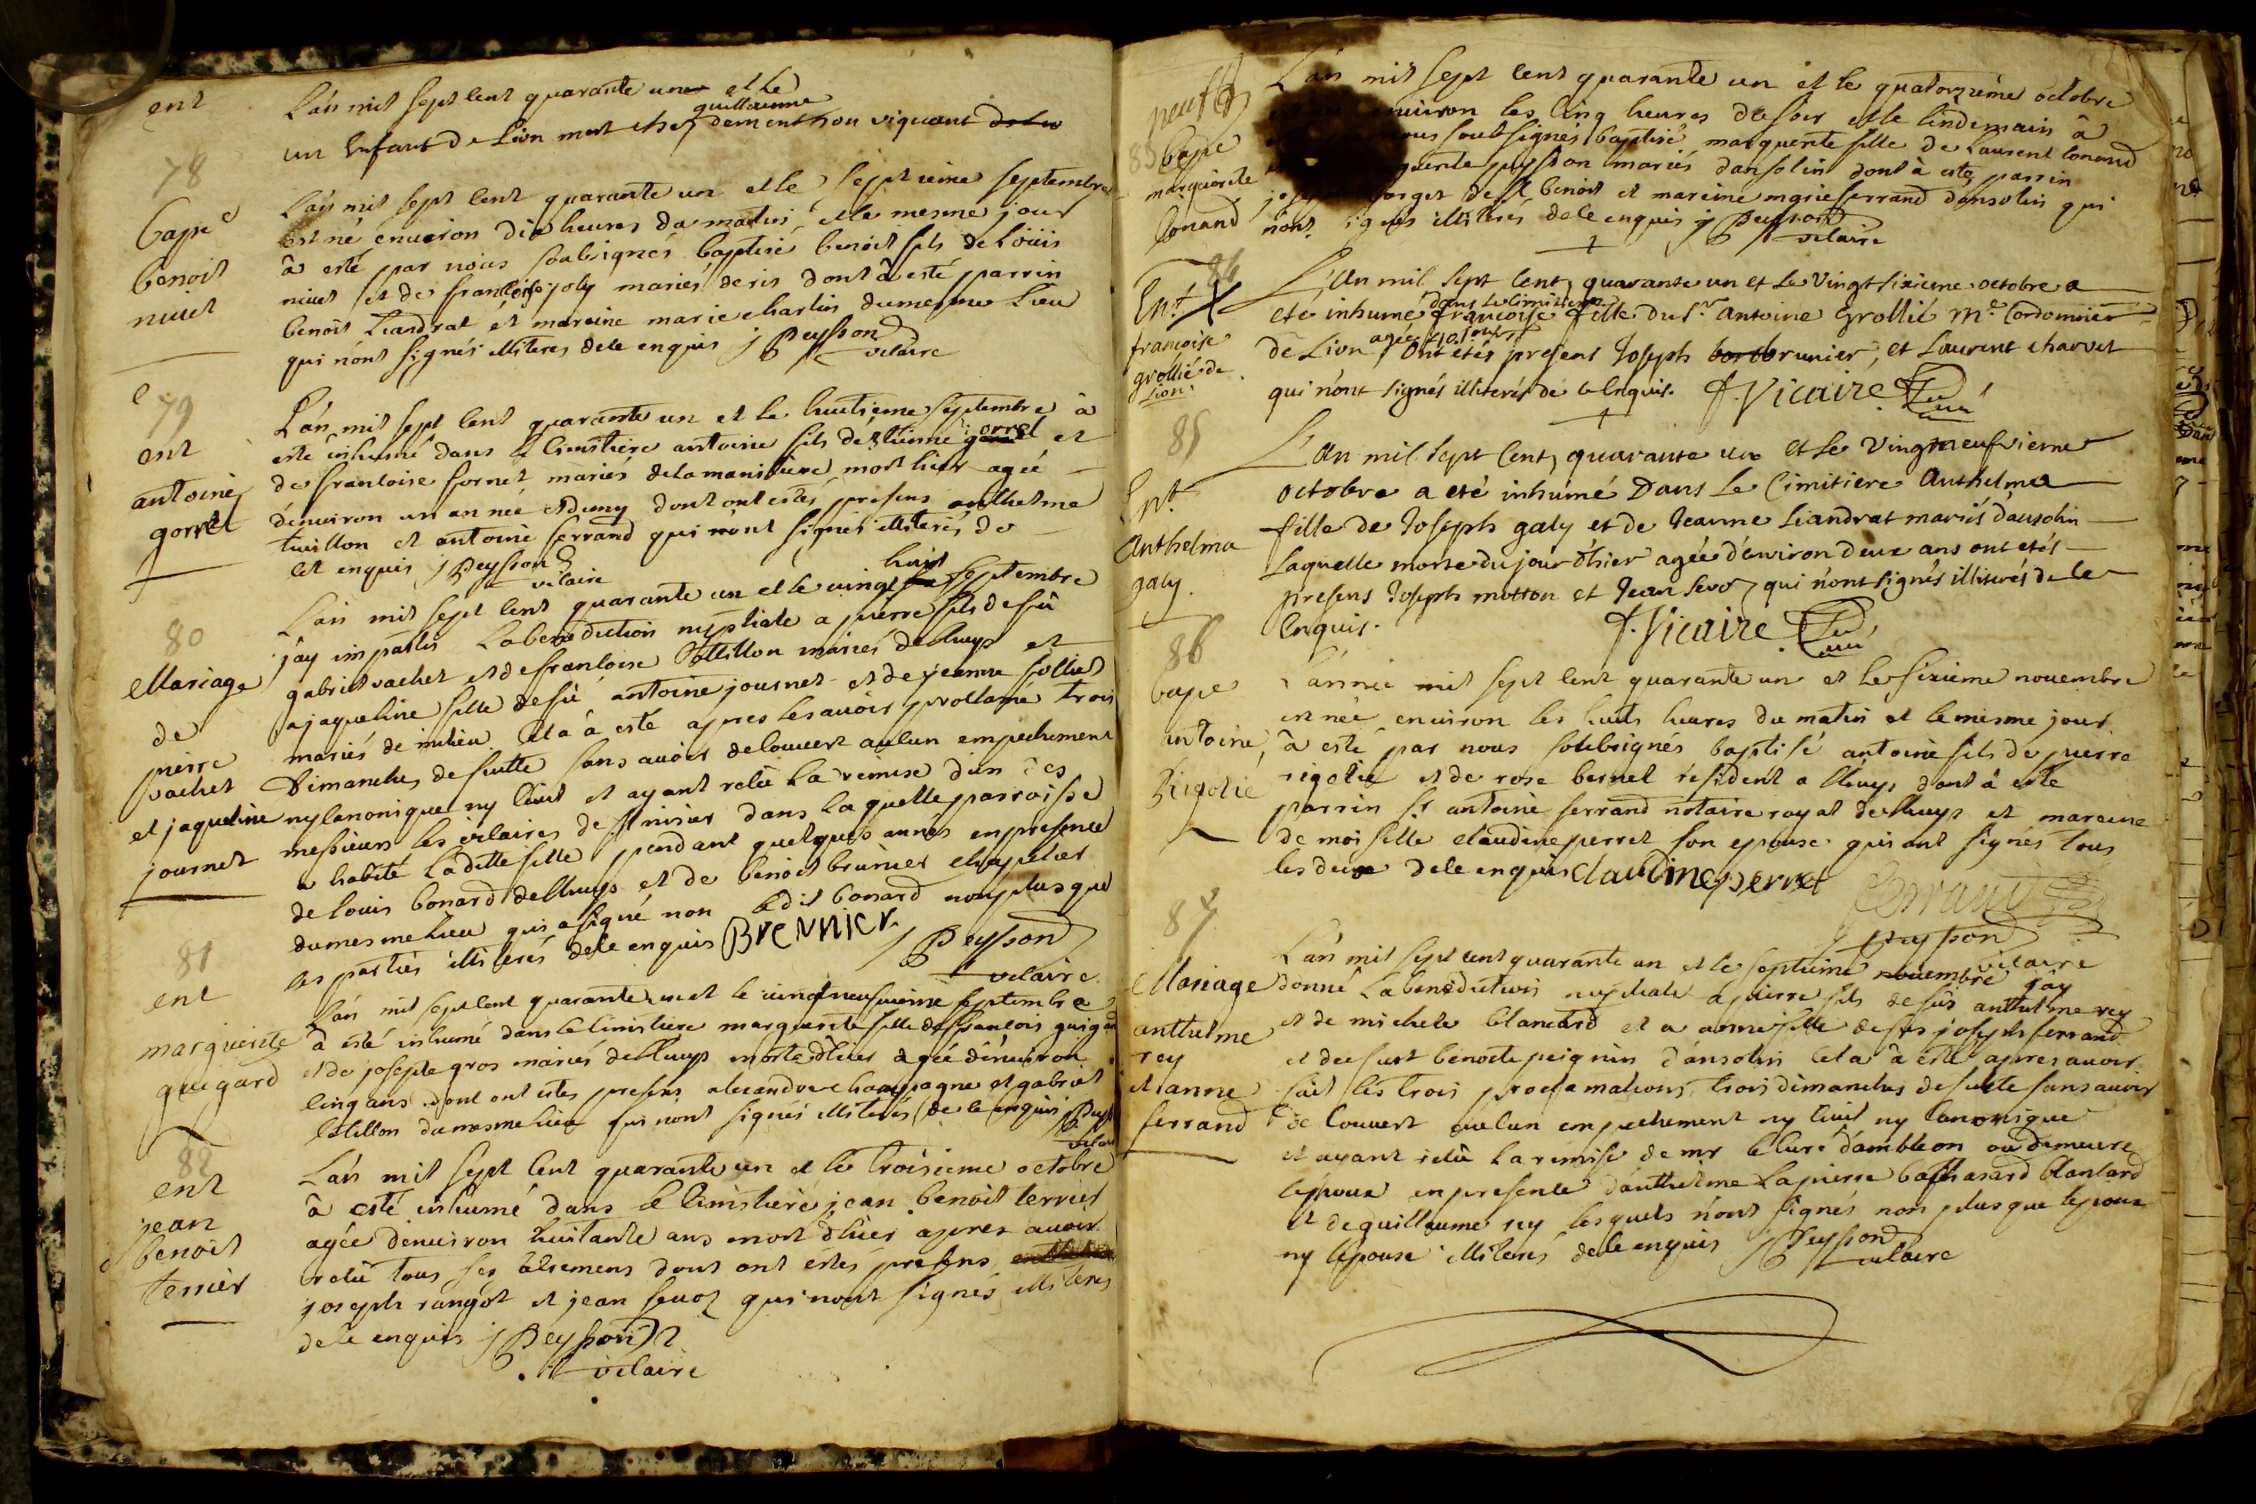 ent
L'an mil sept cent quarante un et le
guillaume
un Enfant de Lion mort chez dementhon viquant
78
Bap.e
benoit
nivet
L'an mil sept cent quarante un et le septieme septembre
est né environ dix heures du matin et le mesme jour
à esté par nous soubsignés baptisé benoit fils de Loüis
nivet et de francoise joly mariés de ris dont à esté parrin
benoit Liandrat et mareine marie charlin du mesme Lieu
qui n'ont signés illiteres de le enquis j Peysson
vicaire
79
ent
antoine
gorrel
L'an mil sept cent quarante un et le huitieme septembre à
esté inhumé dans le Cimitiere antoine fils d'Etienne gorrel et
de francoise fornet mariés de la manissiere mort hier agée
d'environ un année et demy dont ont estés presens anthelme
tuillon et antoine ferrand qui n'ont signés illiterés de
let enquis j Peysson
vicaire
80
Mariage
de
pierre
vachet
et jaqueline
journet
huit
L'an mil sept cent quarante un et le vingt septembre
j'ay impartis La benediction nuptiale a pierre fils de fû
gabriel vachet et de francoise Cottillon mariés de lhuys et
a jaqueline fille de fû antoine journet et de jeanne folliet
mariés de milieu Cela à esté apres les avoir proclamé trois
Dimanches de suitte sans avoir decouvert auCun empechement
ny Canonique ny Civil et ayant recû La remise d'un des
messieurs les vicaires de St nisier dans La quelle parroisse
a habité La ditte fille pendant quelques annés en presence
de Louis bonard de lhuys et de benoit brunier chapelier
du mesme Lieu qui a signé non Ledit bonard non plus que
les parties illiterés de le enquis Brennier
j Peysson
vicaire
81
ent
marguerite
guigard
L'an mil sept cent quarante un et le vingt neufvieme septembre
à esté inhumé dans le Cimitiere marguerite fille de francois guigard
et de josepte gros mariés de lhuys morte d'hier agée d'environ
Cinq ans dont ont estés presens alexandre champagne et gabriel
Cotillon du mesme Lieu qui n'ont signés illiterés de le enquis j Peysson
vicaire
82
ent
jean
benoit
terrier
L'an mil sept cent quarante un et le troisieme octobre
à esté inhumé dans le Cimitiere jean benoit terrier
agée d'environ huitante ans mort d'hier apres avoir
recû tous ses sacremens dont ont estés presens
joseph rangot et jean sevoz qui n'ont signés illiteres
de le enquis j Peysson
vicaire
neuf
83
bap.e
marguerite
Conand
L'an mil sept cent quarante un et le quatorzieme octobre
environ les Cinq heures du soir et le lindemain à
nous soubsignés baptisé marguerite fille de Laurent Conand
guerite peysson mariés d'ansolin dont à esté parrin
jos orget de St benoit et mareine marie ferrand d'ansolin qui
n'ont signés illiterés de le enquis j Peysson
vicaire
84
Ent
francoise
grollié de
Lion.
L'an mil Sept Cent quarante un et Le Vingt sixieme octobre a
dans Le Cimitiere
eté inhumé francoise fille du Sr antoine Grollié Me Cordonnier
agée 40. jours
de Lion, ont étés presens Joseph brunier, et Laurent charvet
qui n'ont signés illiterés de le Enquis. f. Vicaire
85
Ent
Anthelma
galy.
L'an mil Sept Cent quarante un et Le Vingtneufvieme
octobre a eté inhumé Dans Le Cimitiere Anthelma
fille de Joseph galy et de Jeanne Liandrat mariés d'ansolin
Laquelle morte du jour d'hier agée d'environ deux ans ont etés
presens Joseph motton et Jean Sevoz, qui n'ont signés illiterés de le
Enquis. f. Vicaire
86
bape
antoine
Rigolié
L'année mil sept cent quarante un et Le sixieme novembre
est née environ les huits heures du matin et le mesme jour
à esté par nous soubsignés baptisé antoine fils de pierre
rigolié et de rose bernet residant a lhuys dont à esté
parrin Sr antoine ferrand notaire royal de lhuys et mareine
de moiselle claudine perret son epouse qui ont signés tous
les deux de le enquis claudine perret ferrand
j Peysson
vicaire
87
Mariage
anthelme
rey
et anne
ferrand
L'an mil sept cent quarante un et le septieme novembre j'ay
donné La benediction nuptiale a pierre fils de fûs anthelme rey
et de michele blancard et a anne fille de fus joseph ferrand
et de fust benoite peignin d'ansolin Cela à esté apres avoir
fait les trois proclamations trois dimanches de suitte sans avoir
de Couvert auCun empechement ny Civil ny Canonique
et ayant recû La remise de mr le Curé d'ambleon ou demeure
l'epoux en presence d'anthelme Lapierre balthasard blancard
et de guillaume rey lesquels n'ont signés non plus que l'epoux
ny l'epouse illiterés de le enquis j Peysson
vicaire